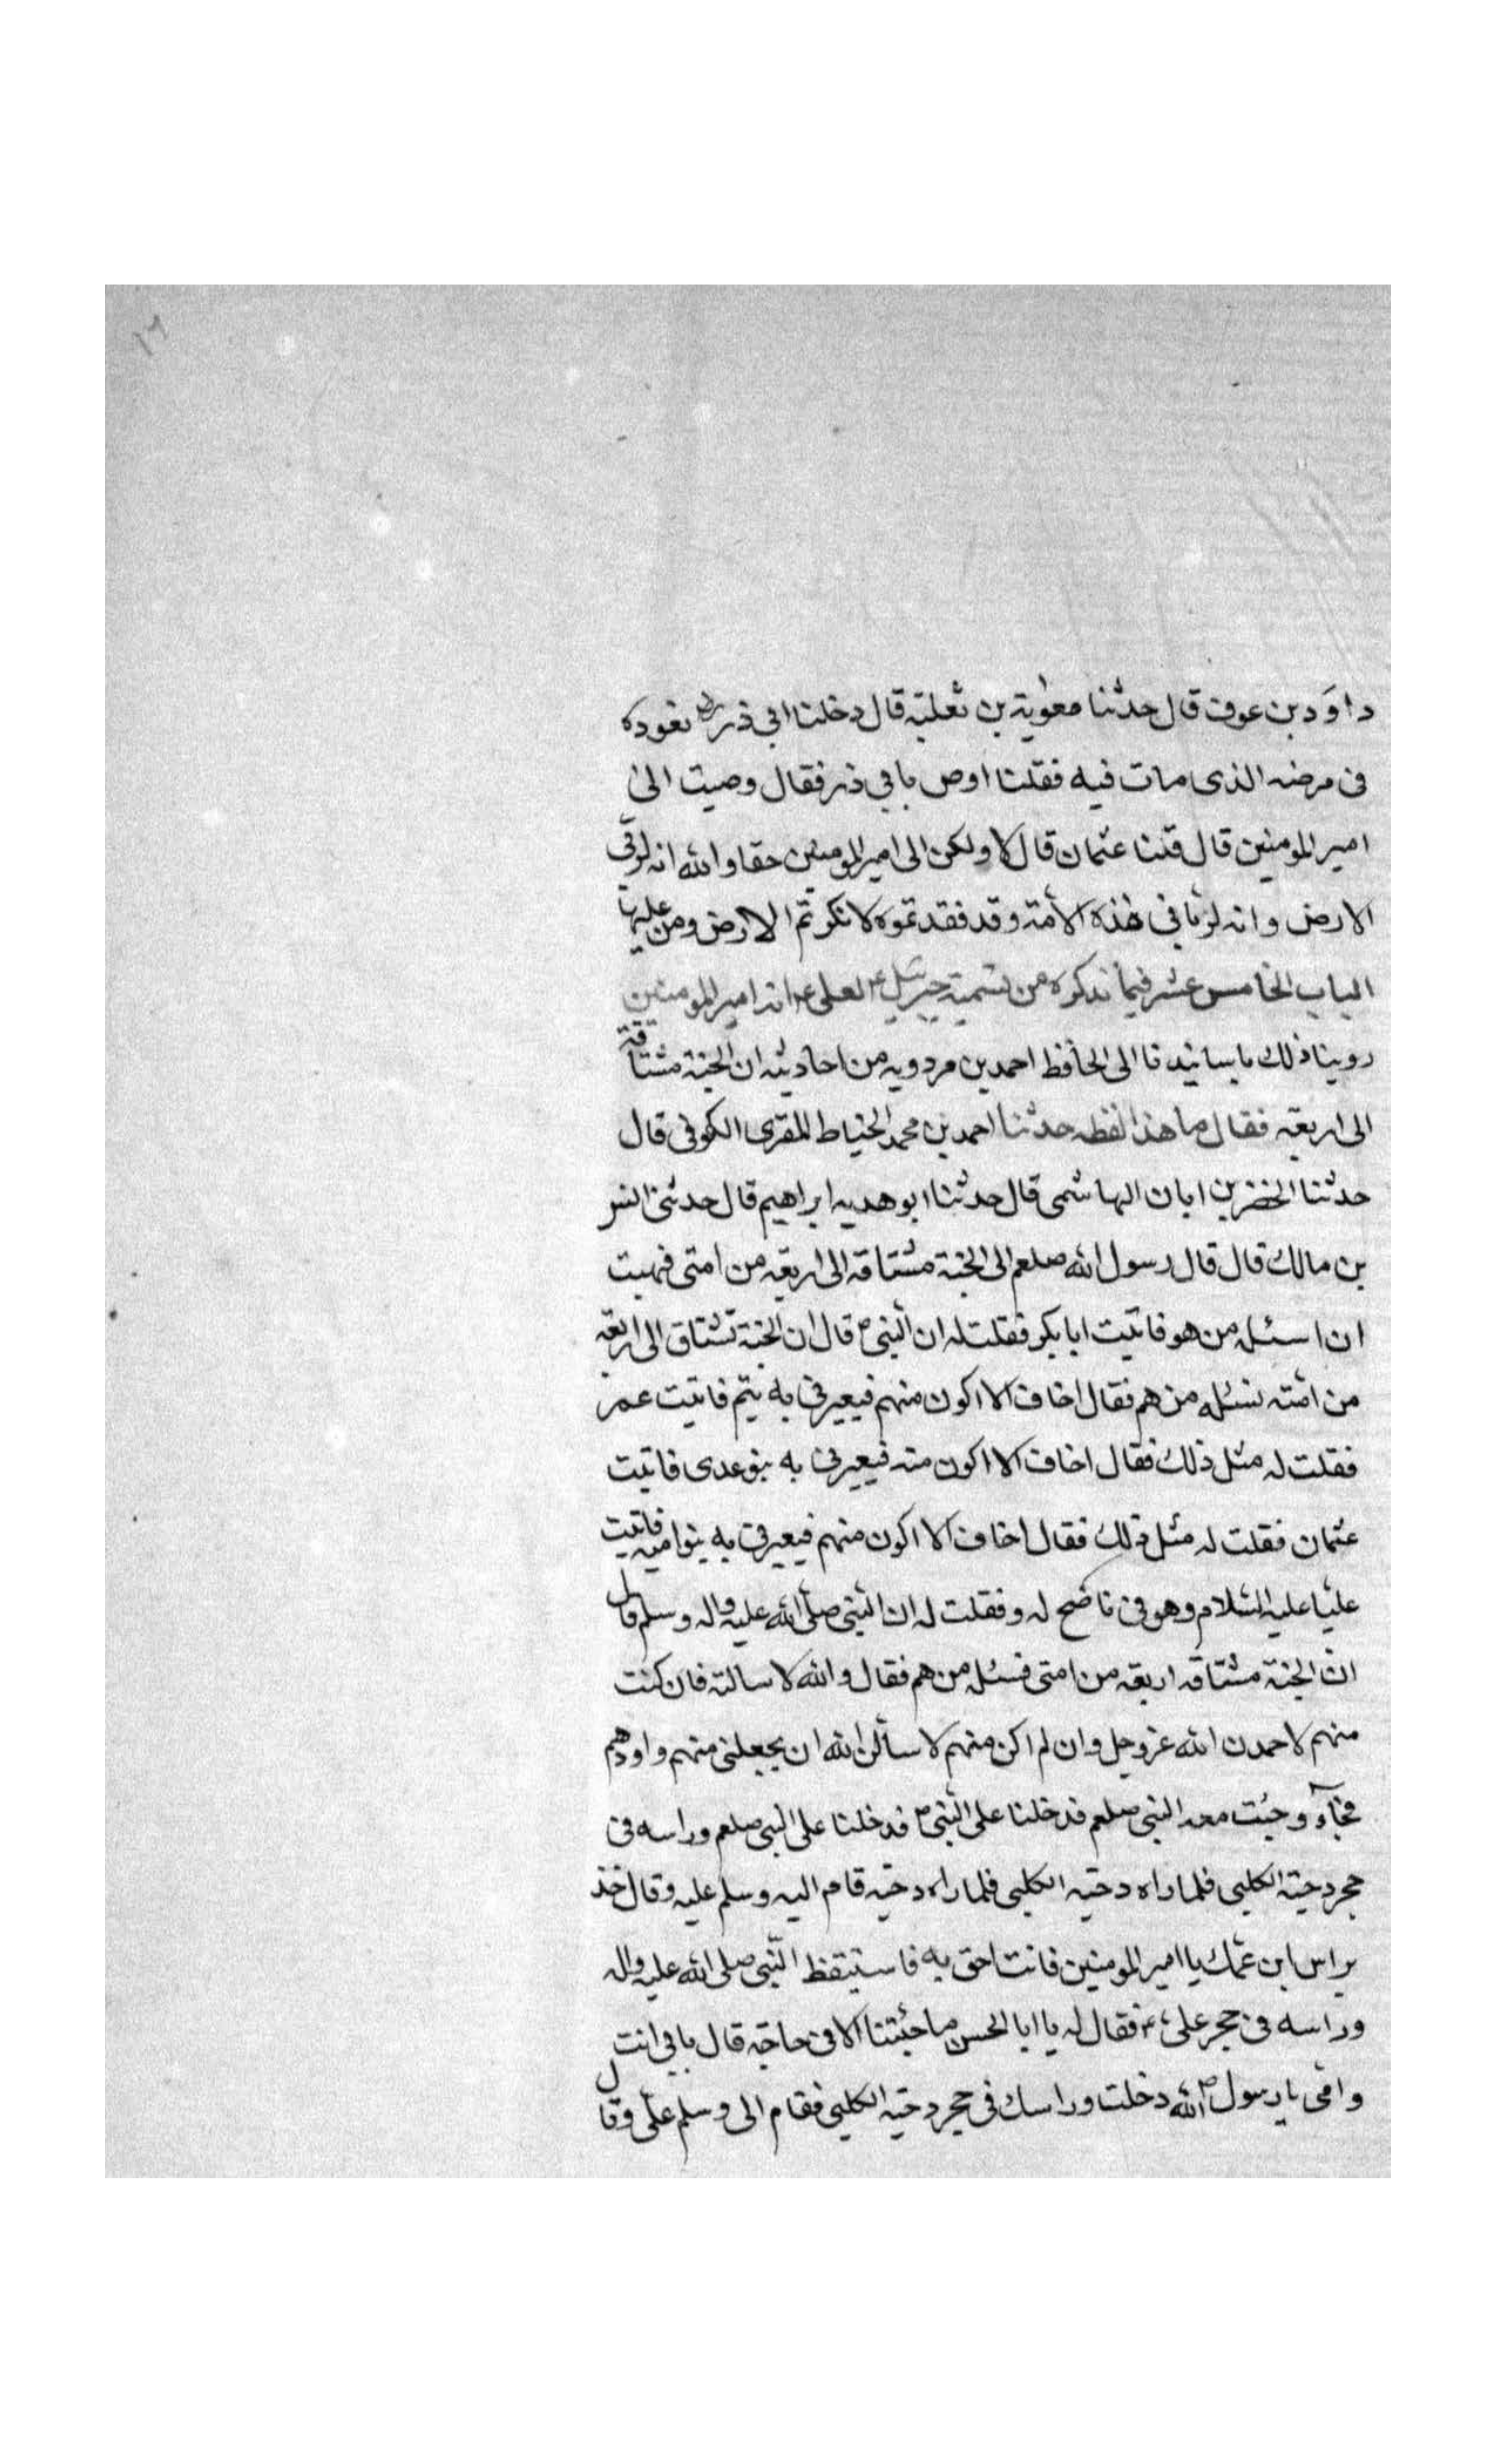 ١٦
داوَد بن عوف قال حدثنا معوية بن ثعلبة قال دخلنا ابي ذر رض نعوده
فى مرضه الذى مات فيه فقلنا اوص يابي ذر فقال وصيت الى
امير المومنين قال قلنا عثمان قال لا ولكن الى امير المومنين حقا والله انه لربي
الارض وانه لربانى هذه الأمة وقد فقدتموه لانكرتم الارض ومن عليها
الباب الخامس عشر فيما نذكره من تسمية جبرئيل ع لعلى ع انه امير المومنين
روينا ذلك باسانيدنا الى الحافظ احمد بن مردويه من احاديثه ان الجنة مشتاقة
الى اربعة فقال ما هذا لفظه حدثنا احمد بن محمد الخياط المقرى الكوفى قال
حدثنا الخضر بن ابان الهاشمى قال حدثنا ابو هديه ابراهيم قال حدثنى انس
بن مالك قال قال رسول الله صلعم الى الجنة مشتاقه الى اربعه من امتى فهبت
ان اسئله من هو فاتيت ابا بكر فقلت له ان النبى ص قال ان الجنة تشتاق الى اربعة
من امته نسئله من هم فقال اخاف الا اكون منهم فيعيرنى به يتم فاتيت عمر
فقلت له مثل ذلك فقال اخاف الا اكون منه فيعيرنى به بنو عدى فاتيت
عثمان فقلت له مثل ذلك فقال اخاف الا اكون منهم فيعيرنى به بنو اميه فاتيت
عليا عليه السّلام وهو فى ناضح له وفقلت له ان النبى صلى الله عليه واله وسلم قال
ان الجنة مشتاقه اربعه من امتى فسئله من هم فقال والله لاسالنه فان كنت
منهم لاحمدن الله عزوجل وان لم اكن منهم لاسألن الله ان يجعلنى منهم واودهم
فجآء وجئت معه النبى صلعم فدخلنا على النبى ص فدخلنا على النبى صلعم وراسه فى
حجر دحية الكلبى فلما راه دحيه الكلبى فلما راه دحيه قام اليه وسلم عليه وقال خذ
براس ابن عمك يا امير المومنين فانت احق به فاستيقظ النّبى صلى الله عليه واله
وراسه فى حجر على ع فقال له يا ابا الحسن ما جئتنا الا فى حاجة قال بابي انت
وامى يا رسول الله ص دخلت وراسك فى حجر دحيّه الكلبى فقام الى وسلم علىّ وقال